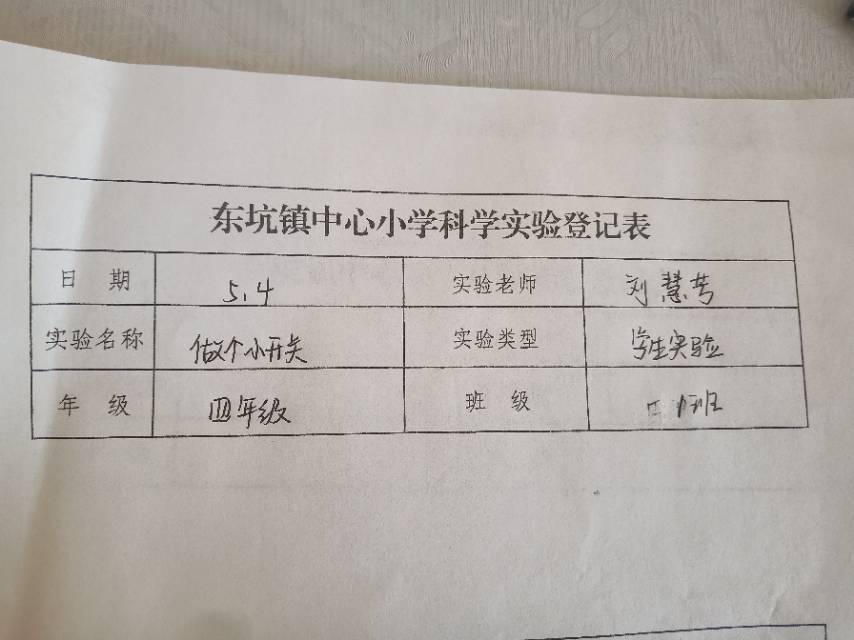 东坑镇中心小学科学实验登记表
日 期 5.4 实验老师 刘慧芳
实验名称 做个小开关 实验类型 学生实验
年 级 四年级 班 级 班